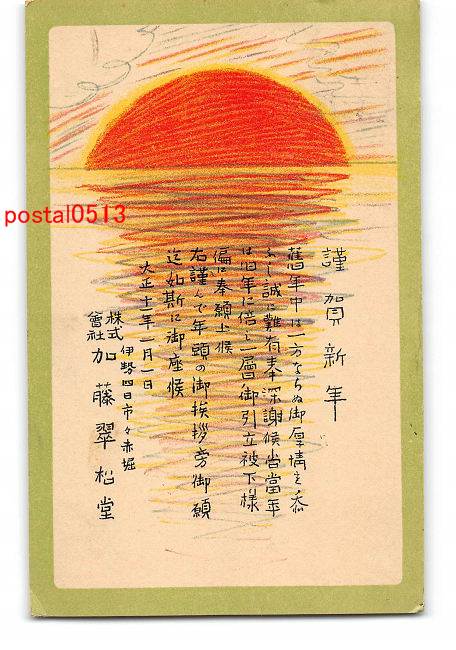 謹賀新年
舊年中は一方ならぬ御厚情を忝
ふし誠に難有奉深謝候尚當年
は旧年に倍し一層御引立被下様
偏に奉願上候
右謹んで年頭の御挨拶旁御願
迄如斯に御座候
大正十一年一月一日
伊勢四日市々赤堀
株式會社 加藤翠松堂
postal0513